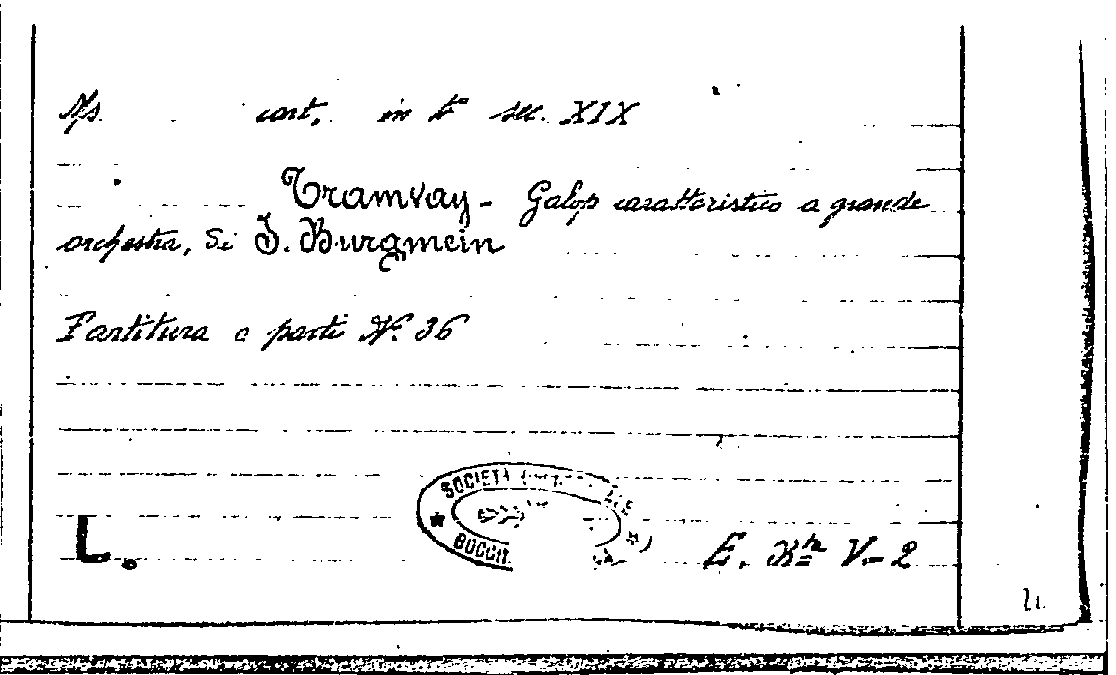 Ms. cart. in 4° sec. XIX
Tramvay - Galop caratteristico a grande
orchestra, di J. Burgmein
Partitura e parti N. 36
SOCIETÀ
L. E. V-2